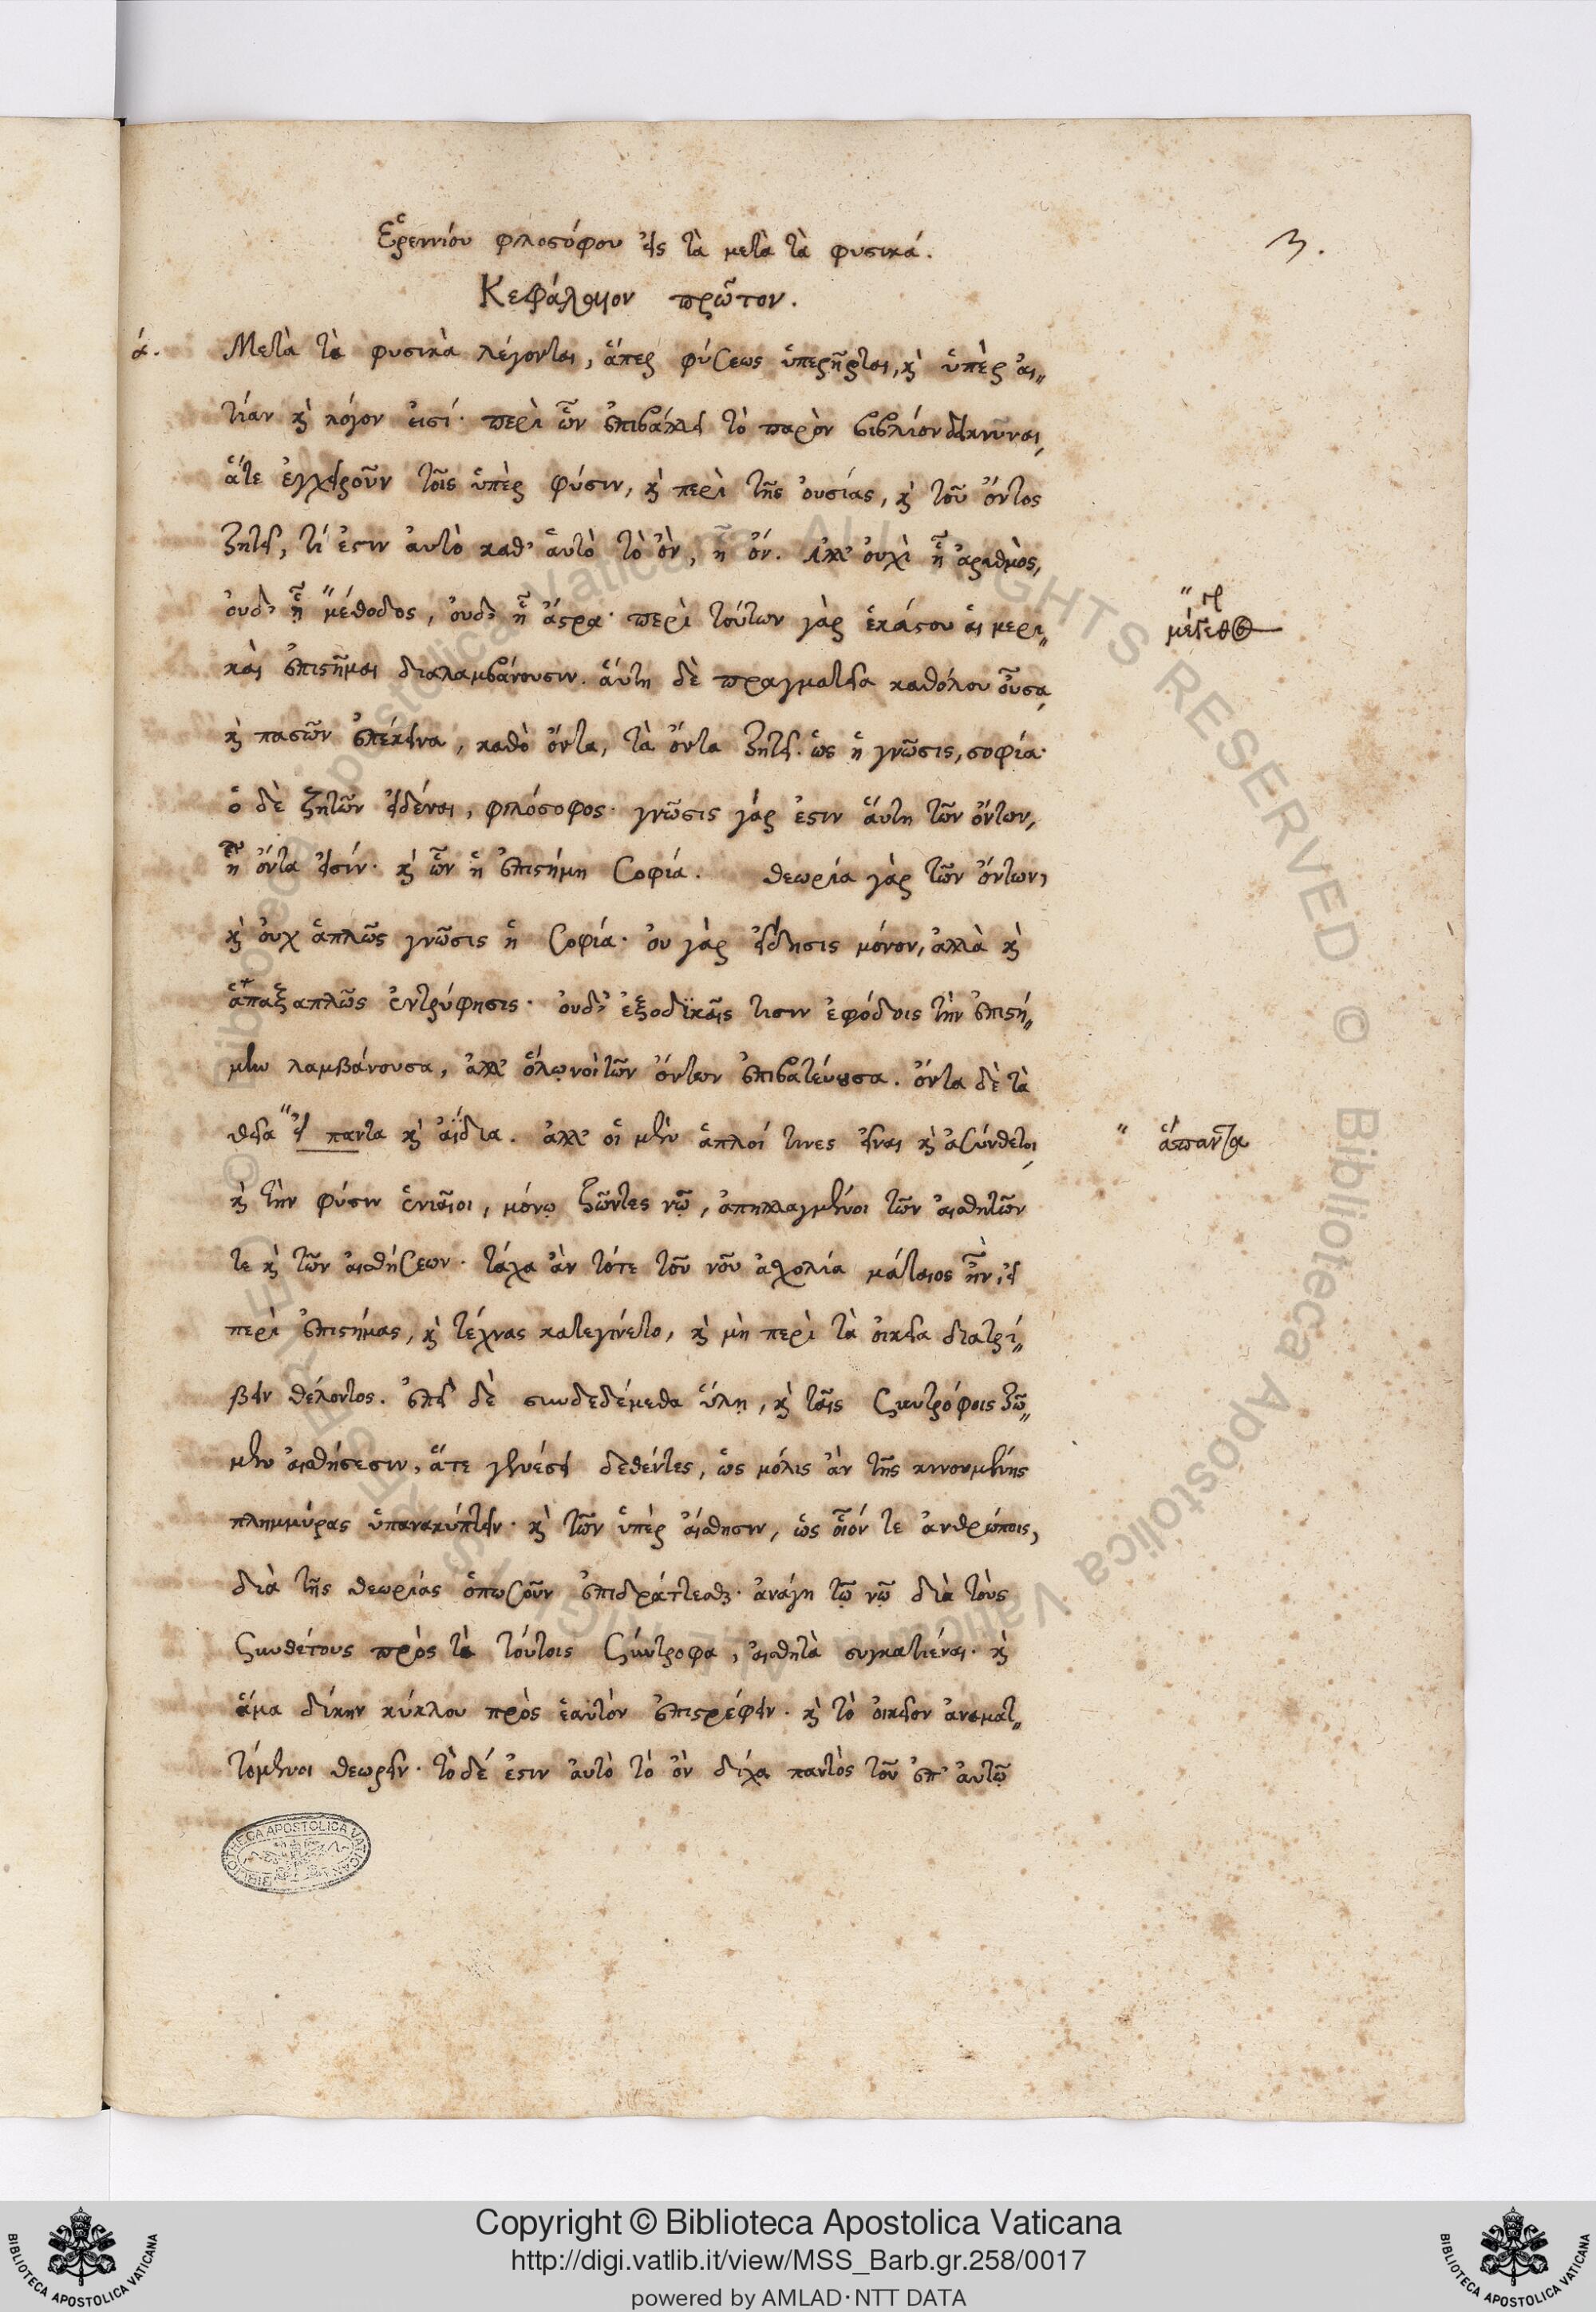 Ἑρεννίου φιλοσόφου εἰς τὰ μετὰ τὰ φυσικά.
3.
Κεφάλαιον πρῶτον.
ά. Μετὰ τὰ φυσικὰ λέγονται, ἅπερ φύσεως ὑπερῆρται, καὶ ὑπὲρ αἰ„
τίαν καὶ λόγον εἰσί· περὶ ὧν ἐπιβάλλει τὸ παρὸν βιβλίον δεικνῦναι,
ἅτε ἐγχειροῦν τοῖς ὑπὲρ φύσιν, καὶ περὶ τῆς οὐσίας, καὶ τοῦ ὄντος
ζητεῖ, τί ἐστιν αὐτὸ καθ' αὑτὸ τὸ ὂν, ᾗ ὄν. Ἀλλ' οὐχὶ ᾗ ἀριθμὸς,
οὐδ' ᾗ "μέθοδος, οὐδ' ᾗ ἄστρα· περὶ τούτων γὰρ ἑκάστου αἱ μερι„
" γρ μέγεθος
καὶ ἐπιστῆμαι διαλαμβάνουσιν. αὕτη δὲ πραγματεία καθόλου οὖσα,
καὶ πασῶν ἐπέκεινα, καθὸ ὄντα, τὰ ὄντα ζητεῖ. ὡς ἡ γνῶσις, σοφία·
ὁ δὲ ζητῶν εἰδέναι, φιλόσοφος· γνῶσις γάρ ἐστιν αὕτη τῶν ὄντων,
ᾗ ὄντα εἰσίν· καὶ ὧν ἡ ἐπιστήμη σοφία. θεωρία γὰρ τῶν ὄντων,
καὶ οὐχ ἁπλῶς γνῶσις ἡ σοφία· οὐ γὰρ εἴδησις μόνον, ἀλλὰ καὶ
ἅπαξαπλῶς ἐντρύφησις· οὐδ' ἐξοδϊκαῖς τισιν ἐφόδοις τὴν ἐπιστή„
μην λαμβάνουσα, ἀλλ' ὅλῳ νοῒ τῶν ὄντων ἐπιβατεύουσα. ὄντα δὲ τὰ
θεῖα "εἰ παντα καὶ ἀΐδια. ἀλλ' οἱ μὲν ἁπλοί τινες εἶναι καὶ ἀσύνθετοι,
" ἅπαντα
καὶ τὴν φύσιν ἑνιαῖοι, μόνῳ ζῶντες νῷ, ἀπηλλαγμένοι τῶν αἰσθητῶν
τε καὶ τῶν αἰσθήσεων· τάχα ἂν τότε τοῦ νοῦ ἀσχολία μάταιος ἦν, εἰ
περὶ ἐπιστήμας, καὶ τέχνας κατεγίνετο, καὶ μὴ περὶ τὰ οἰκεῖα διατρί„
βειν θέλοντος. ἐπεὶ δὲ συνδεδέμεθα ὕλῃ, καὶ ταῖς συντρόφοις ζῶ„
μεν αἰσθήσεσιν, ἅτε γενέσει δεθέντες, ὡς μόλις ἂν τῆς κινουμένης
πλημμύρας ὑπανακύπτειν· καὶ τῶν ὑπὲρ αἴσθησιν, ὡς οἷόν τε ἀνθρώποις,
διὰ τῆς θεωρίας ὁπωσοῦν ἐπιδράττεσθαι· ἀνάγκη τῷ νῷ διὰ τοὺς
συνθέτους πρὸς τὰ τούτοις σύντροφα, αἰσθητὰ συγκατιέναι· καὶ
ἅμα δίκην κύκλου πρὸς ἑαυτὸν ἐπιστρέφειν· καὶ τὸ οἰκεῖον ἀναματ„
τόμενοι θεωρεῖν· τὸ δέ ἐστιν αὐτὸ τὸ ὂν δίχα παντὸς τοῦ ἐπ' αὐτῷ
BIBLIOTHECA APOSTOLICA VATICANA
Copyright © Biblioteca Apostolica Vaticana
http://digi.vatlib.it/view/MSS_Barb.gr.258/0017
powered by AMLAD·NTT DATA
BIBLIOTECA APOSTOLICA VATICANA
BIBLIOTECA APOSTOLICA VATICANA